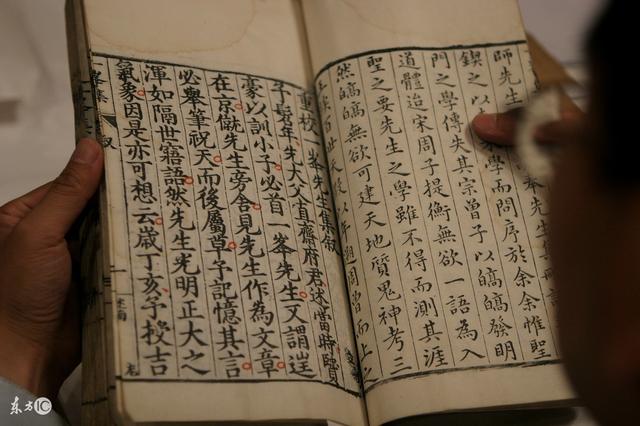 師先生
鍥之以
學而問序於余余惟聖
門之學傳失其宗曾子以皜皜發明
道體迨宋周子提衡無欲一語為入
聖之要先生之學雖不得而測其涯
然皜皜無欲可建天地質鬼神考三
重校一峯先生集敘
予髫年先大父直齋府君述當時賢
豪以訓小子必首一峯先生又謂
在京僦先生旁舍見先生作為文章
必舉筆祝天而後屬草予記憶其言
渾如隔世寤語然先生光明正大之
氣象因是亦可想云歲丁亥予授吉
东方IC